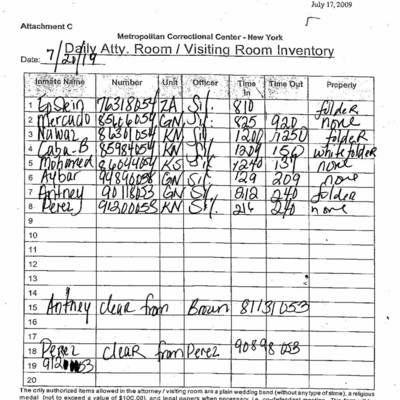 July 17, 2009
Attachment C
Metropolitan Correctional Center - New York
Daily Atty. Room / Visiting Room Inventory
Date: 7/20/19
Inmate Name Number Unit Officer Time In Time Out Property
1 Epstein 76318054 ZA 810 folder
2 Mercado GN 825 920 none
3 Nawaz 86301054 KN 1200 1250 folder
4 85984054 KN 1209 150 white folder
5 Mohamed 86044054 KS 1240 139 none
6 Aybar GN 129 209 none
7 Antney 90118053 GN 212 240 folder
8 Perez 91200053 KN 216 240 none
9
10
11
12
13
14
15 Antney clear from Brown 81131053
17
18 Perez clear from Perez 90898053
19 912 53
20
The only authorized items allowed in the attorney / visiting room are a plain wedding band (without any type of stone), a religious
medal (not to exceed a value of $100.00), and legal papers when necessary